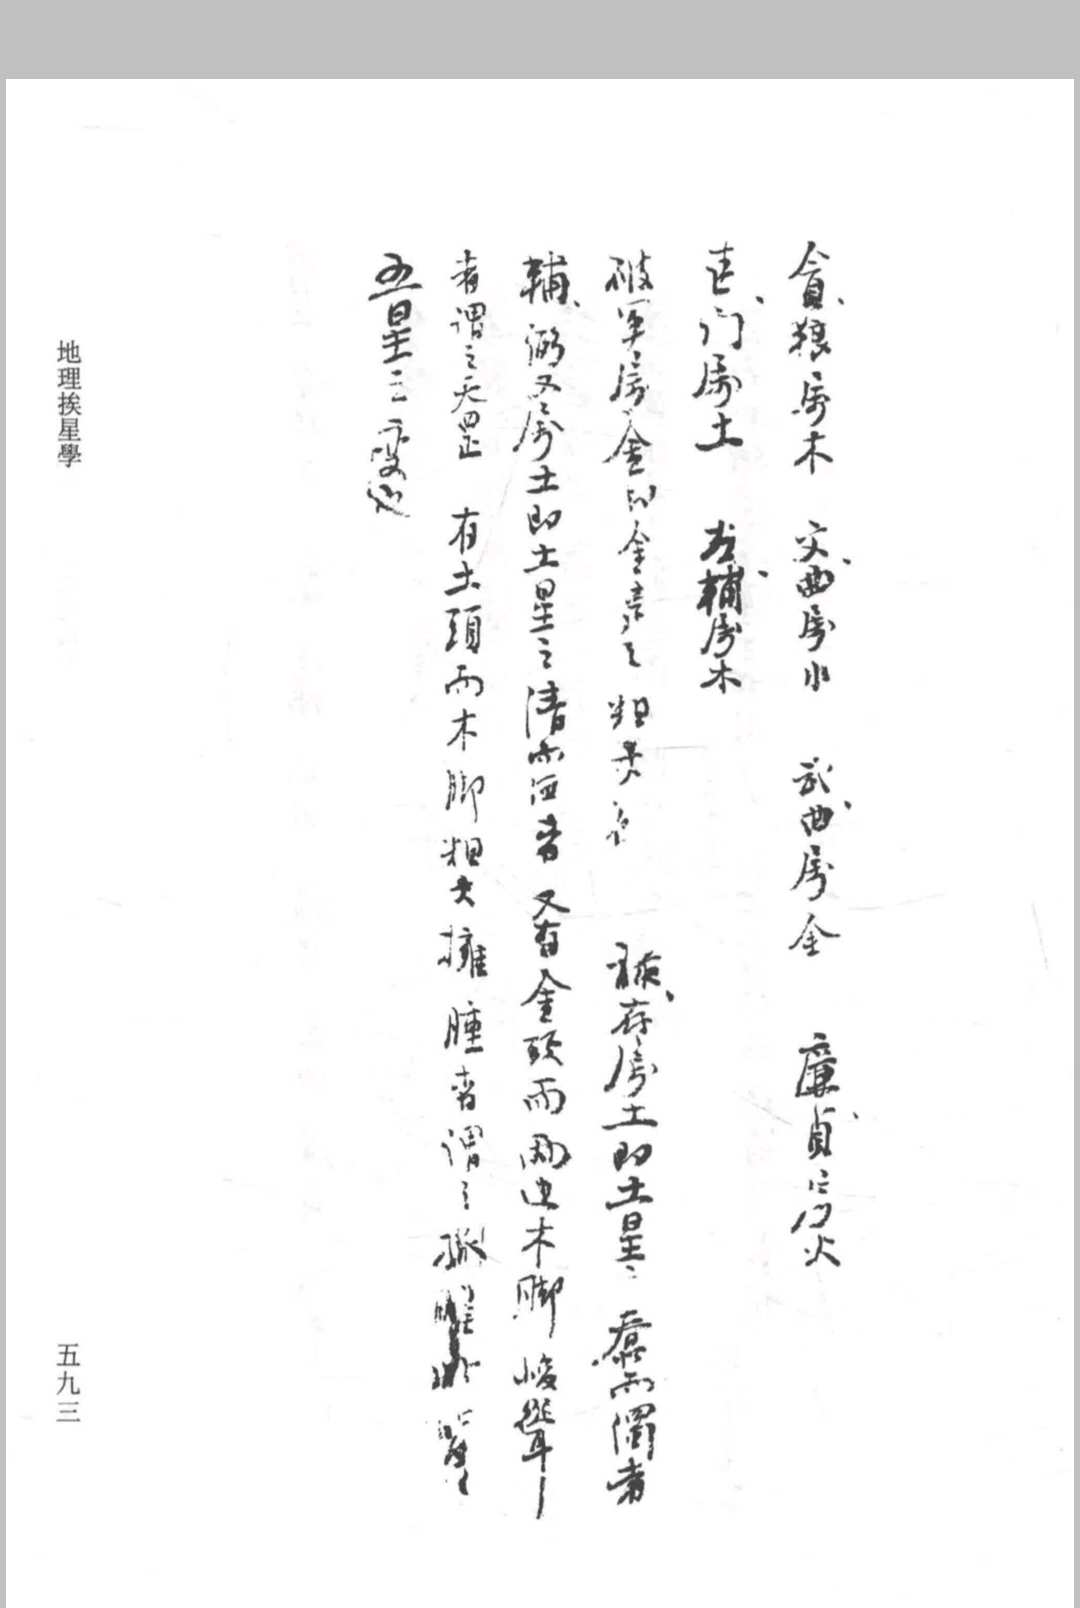 貪狼屬木 文曲屬水 武曲屬金 廉貞屬火
巨门屬土 左輔屬木
破军屬金即金星之粗 禄存屬土即土星之 而濁者
輔弼又屬土即土星之清而 者 又有金頭而兩边木脚峻聳
者谓之天罡 有土頭而木脚粗大擁腫者谓之孤曜
五星之变也
地理挨星學
五九三